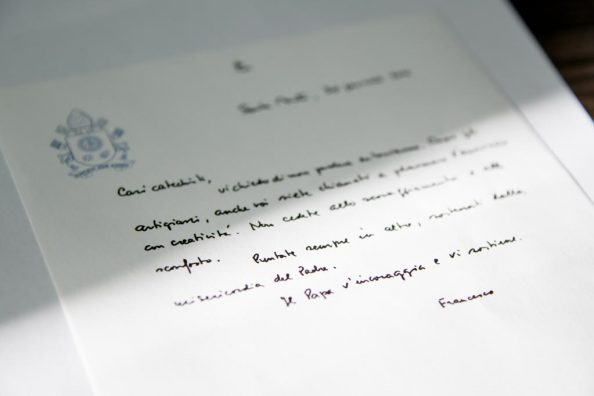 Santa Marta, gennaio
Cari catechisti, vi chiedo di non perdere entusiasmo. Come gli
artigiani, anche voi siete chiamati a plasmare l'annuncio
con creatività. Non cedete allo scoraggiamento e allo
sconforto. Puntate sempre in alto, sostenuti dalla
misericordia del Padre.
Il Papa v'incoraggia e vi sostiene.
Francesco